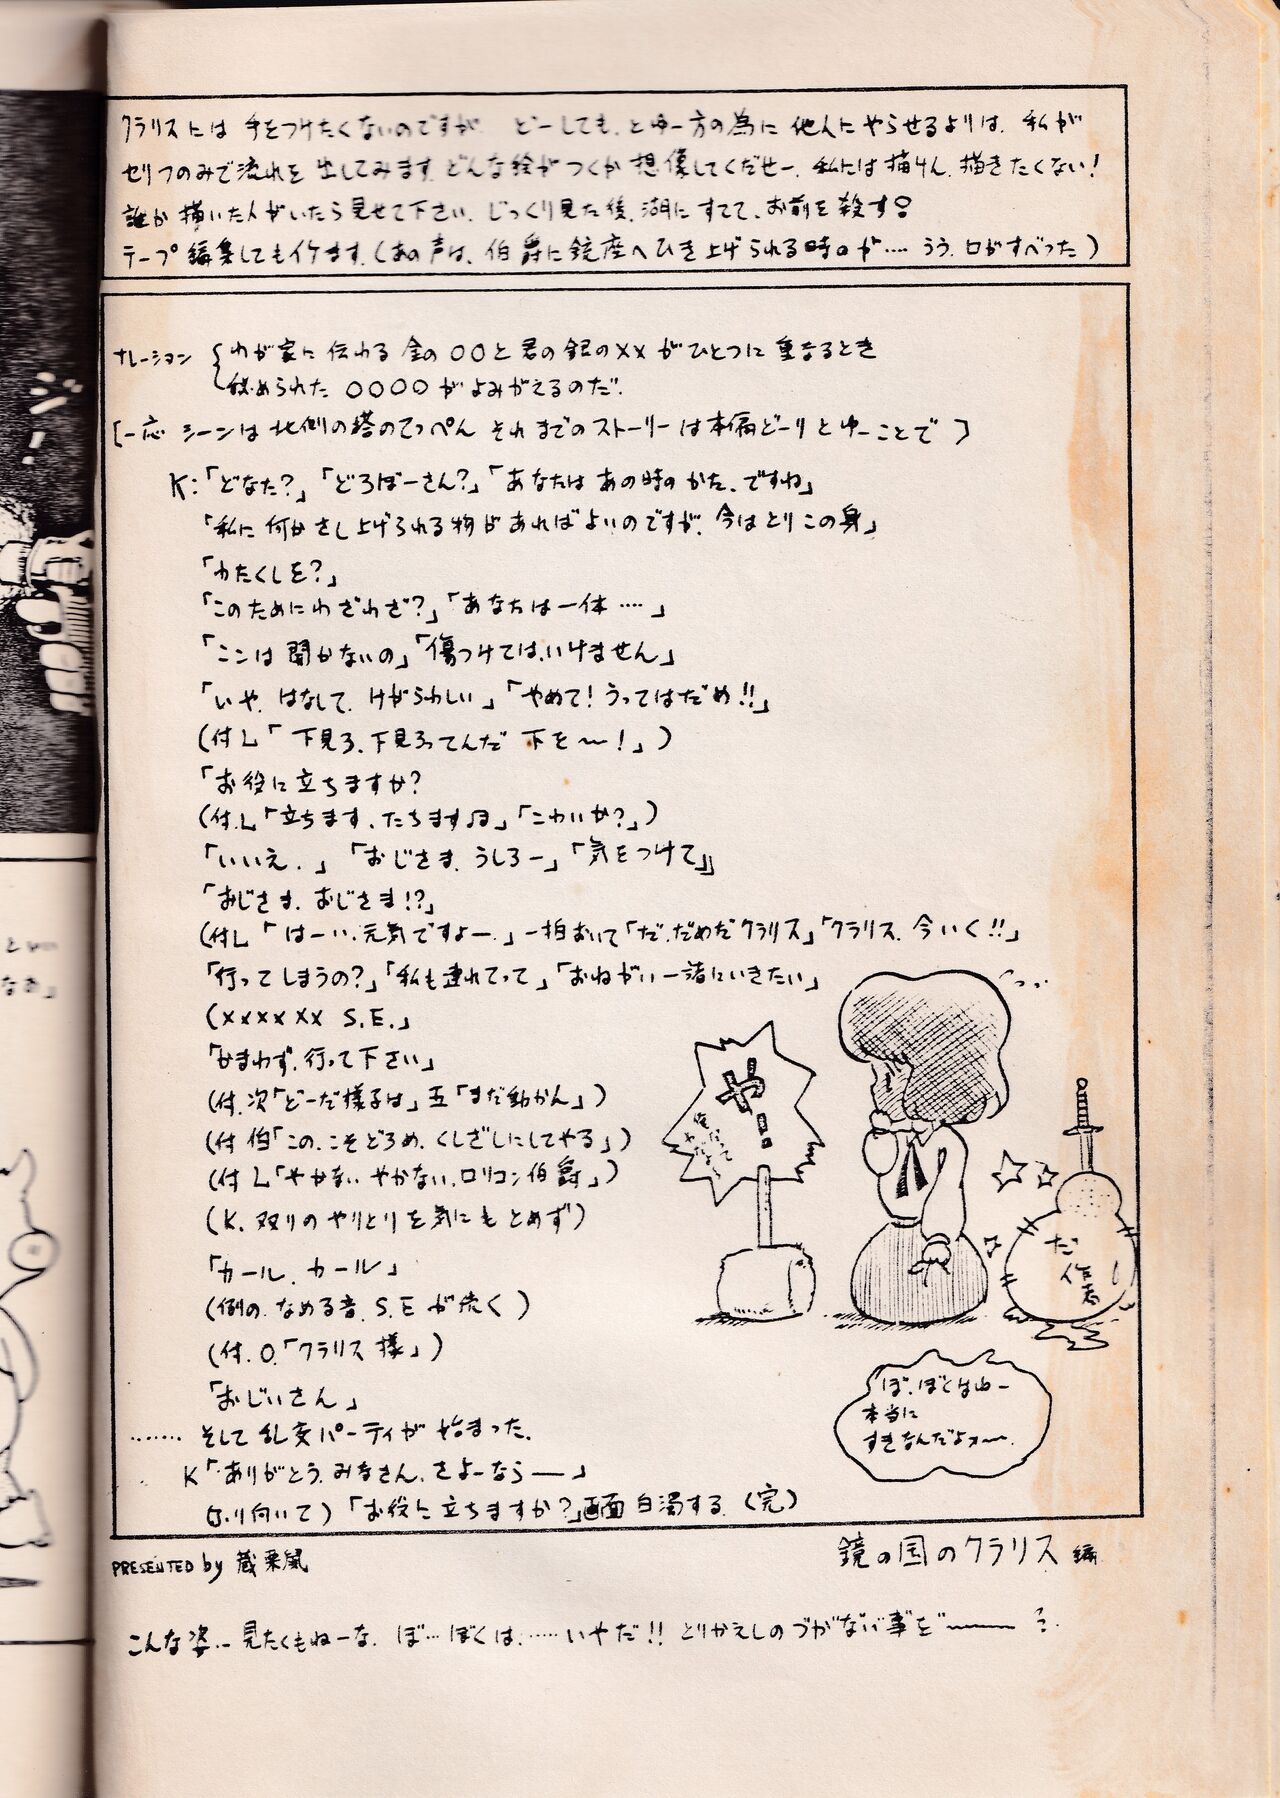 クラリスには 手をつけたくないのですが どーしても、とゆー方の為に 他人にやらせるよりは、私が
セリフのみで流れを 出してみます、どんな絵がつくか 想像してくだせー、私には描けん、描きたくない!
誰か 描いた人がいたら見せて下さい、じっくり見た後、湖にすてて、お前を殺す。
テープ編集してもイケます、(あの声は、伯爵に鏡座へひき上げられる時のが‥‥ うう、口がすべった)
ナレーション
わが家に伝わる 金の〇〇と君の銀の××がひとつに重なるとき
秘められた 〇〇〇〇がよみがえるのだ。
[一応 シーンは 北側の塔のてっぺん それまでのストーリーは本編どーりとゆーことで]
K:「どなた?」「どろぼーさん?」「あなたは あの時のかた、ですね」
「私に何かさし上げられる物があればよいのですが、今はとりこの身」
「わたくしを?」
「このためにわざわざ?」「あなたは一体‥‥」
「ここは 開かないの」「傷つけては、いけません」
「いや、はなして、けがらわしい」「やめて!うってはだめ!!」
(付L「下見ろ、下見ろってんだ 下を〜!」)
「お役に立ちますか?
(付.L「立ちます、たちます♫」「こわいか?」)
「いいえ.」「おじさま、うしろー」「気をつけて」
「おじさま、おじさま!?」
(付L「はーい、元気ですよー、」一拍おいて「だ、だめだクラリス」「クラリス、今いく!!」
「行ってしまうの?」「私も連れてって」「おねがい一諸にいきたい」
(×××××× S.E.」
「かまわず、行って下さい」
(付、次「どーだ様子は」五「まだ動かん」)
(付 伯「この、こそどろめ、くしざしにしてやる」)
(付 L「やかない やかない、ロリコン伯爵」)
(K、双りのやりとりを気にもとめず)
「カール、カール」
(例の、なめる音、S.Eが続く)
(付.O.「クラリス様」)
「おじいさん」
‥‥‥ そして乱交パーティが 始まった.
K「ありがとう、みなさん、さよーならー」
(ふり向いて)「お役に立ちますか?」画面 白濁する (完)
や!
ぼ、ぼくはねー
本当に
すきなんだよォー
PRESENTED by 蔵栗鼠
鏡の国のクラリス 編
こんな姿‥ 見たくもねーな、ぼ‥ぼくは‥‥いやだ!! とりかえしのづがない事をー